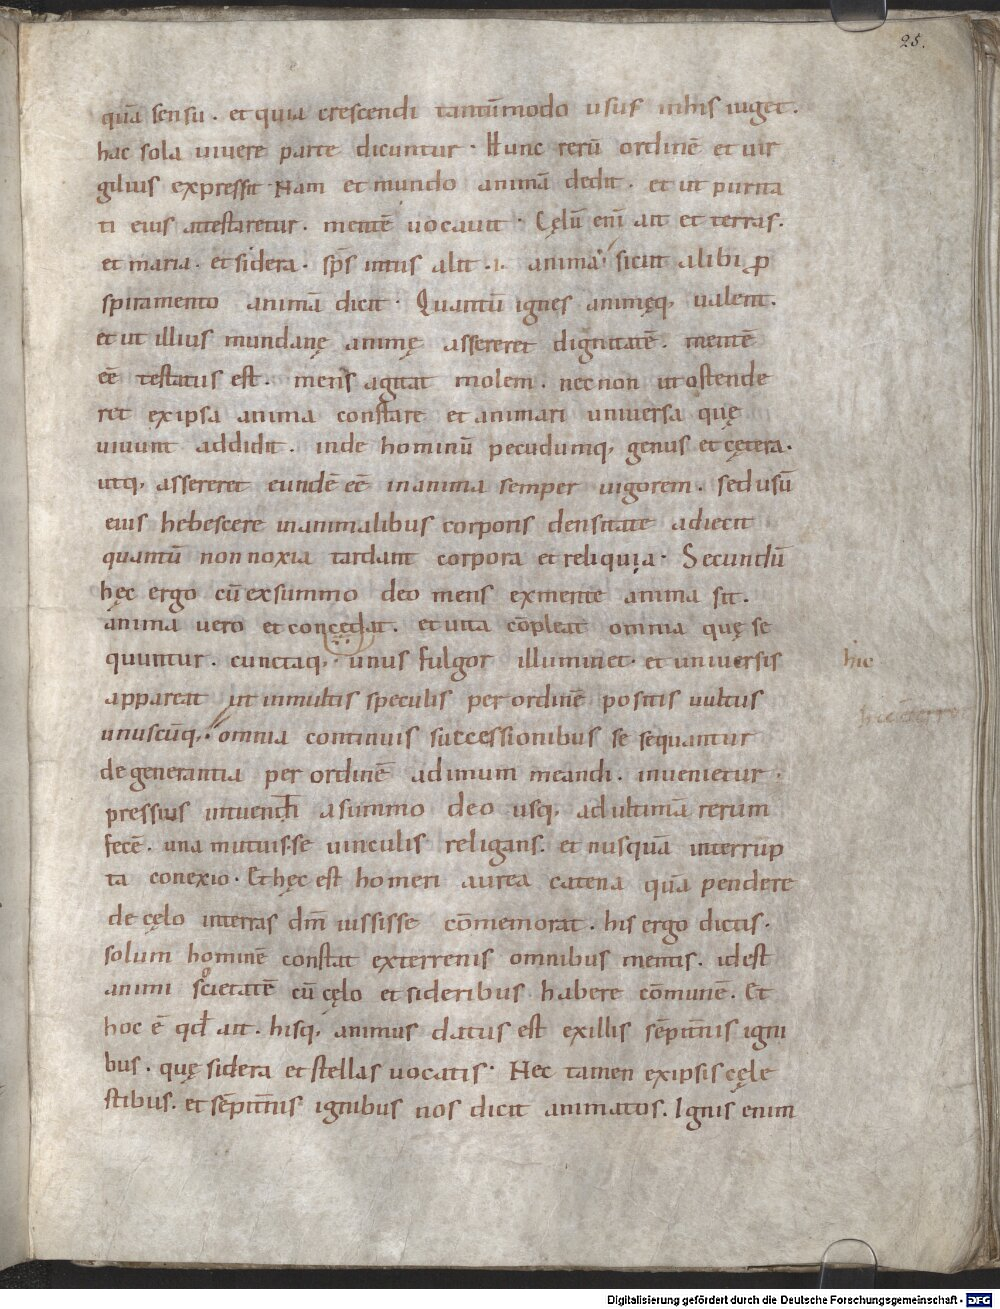 25.
quā sensu . et quia crescendi tantūmodo usus inhis uiget .
hac sola uiuere parte dicuntur . Hunc rerū ordinē et uir
gilius expressit . Nam et mundo animā dedit . et ut purita
ti eius attestaretur . mentē uocauit . Cęlū eni ait et terras .
et maria . et sidera . sp̄s intus alit .i. anima sicut alibi ꝓ
spiramento animā dicit . Quantū ignes animęq; ualent .
et ut illius mundanę animę assereret dignitatē . mentē
eē testatus est . mens agitat molem . necnon ut ostende
ret exipsa anima constare et animari uniuersa quę
uiuunt addidit . inde hominū pecudumq; genus et cętera .
utq; assereret eundē eē inanima semper uigorem . sed usū
eius hebescere inanimalibus corporis densitate adiecit
quantū non noxia tardant corpora et reliquia . Secundū
hęc ergo cū exsummo deo mens exmente anima sit .
anima uero et concedat . et uita cōpleat omnia quę se
quuntur . cunctaq; unus fulgor illuminet . et uniuersis
hic
appareat ut inmultis speculis per ordinē positis uultus
unus cūq; omnia continuis successionibus se sequantur
degenerantia per ordinē adimum meandi . inuenietur .
pressius intuenti asummo deo usq; adultimā rerum
fecē . una mutuis se uinculis religans . et nusquā interrup
ta conexio . Et hęc est homeri aurea catena quā pendere
de cęlo interras dm̄ iussisse cōmemorat . his ergo dictis .
solum hominē constat exterrenis omnibus mentis . idest
animi societatē cū cęlo et sideribus habere cōmunē . Et
hoc ē qd̄ ait . hisq; animus datus est exillis sēpit̄nis igni
bus . quę sidera et stellas uocatis . Nec tamen exipsis cęle
stibus . et sēpit̄nis ignibus nos dicit animatos . Ignis enim
Digitalisierung gefördert durch die Deutsche Forschungsgemeinschaft - DFG